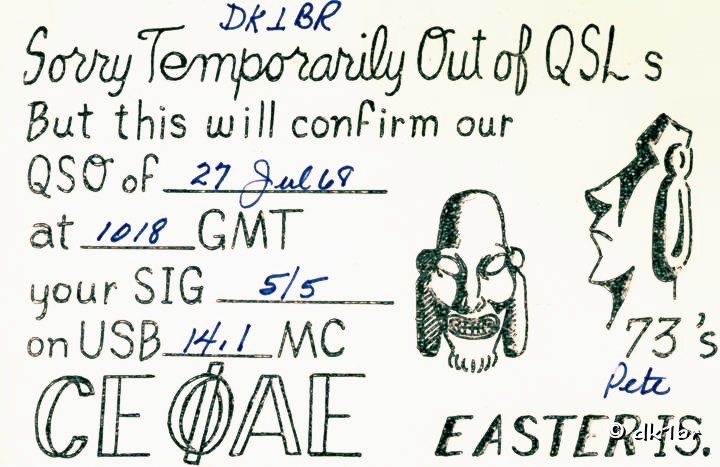 DK1BR
Sorry Temporarily Out of QSLs
But this will confirm our
QSO of 27 Jul 68
at 1018 GMT
your SIG 5/5
on USB 14.1 MC
73's
Pete
CEØAE
EASTER IS.
© dk1br